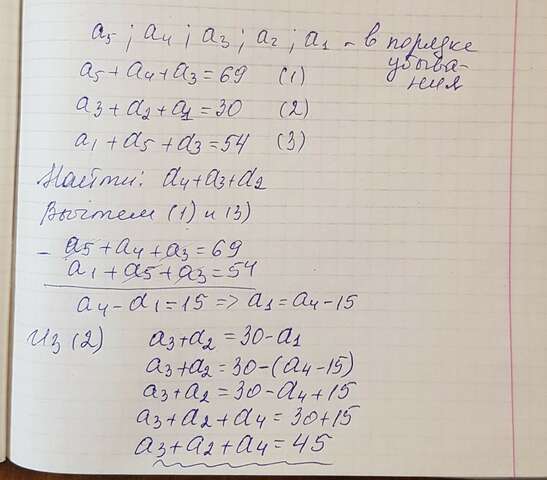 a5 ; a4 ; a3 ; a2 ; a1 - в порядке убывания
a5 + a4 + a3 = 69 (1)
a3 + a2 + a1 = 30 (2)
a1 + a5 + a3 = 54 (3)
Найти: a4 + a3 + a2
Вычтем (1) и (3)
- a5 + a4 + a3 = 69
a1 + a5 + a3 = 54
a4 - a1 = 15 => a1 = a4 - 15
Из (2) a3 + a2 = 30 - a1
a3 + a2 = 30 - (a4 - 15)
a3 + a2 = 30 - a4 + 15
a3 + a2 + a4 = 30 + 15
a3 + a2 + a4 = 45